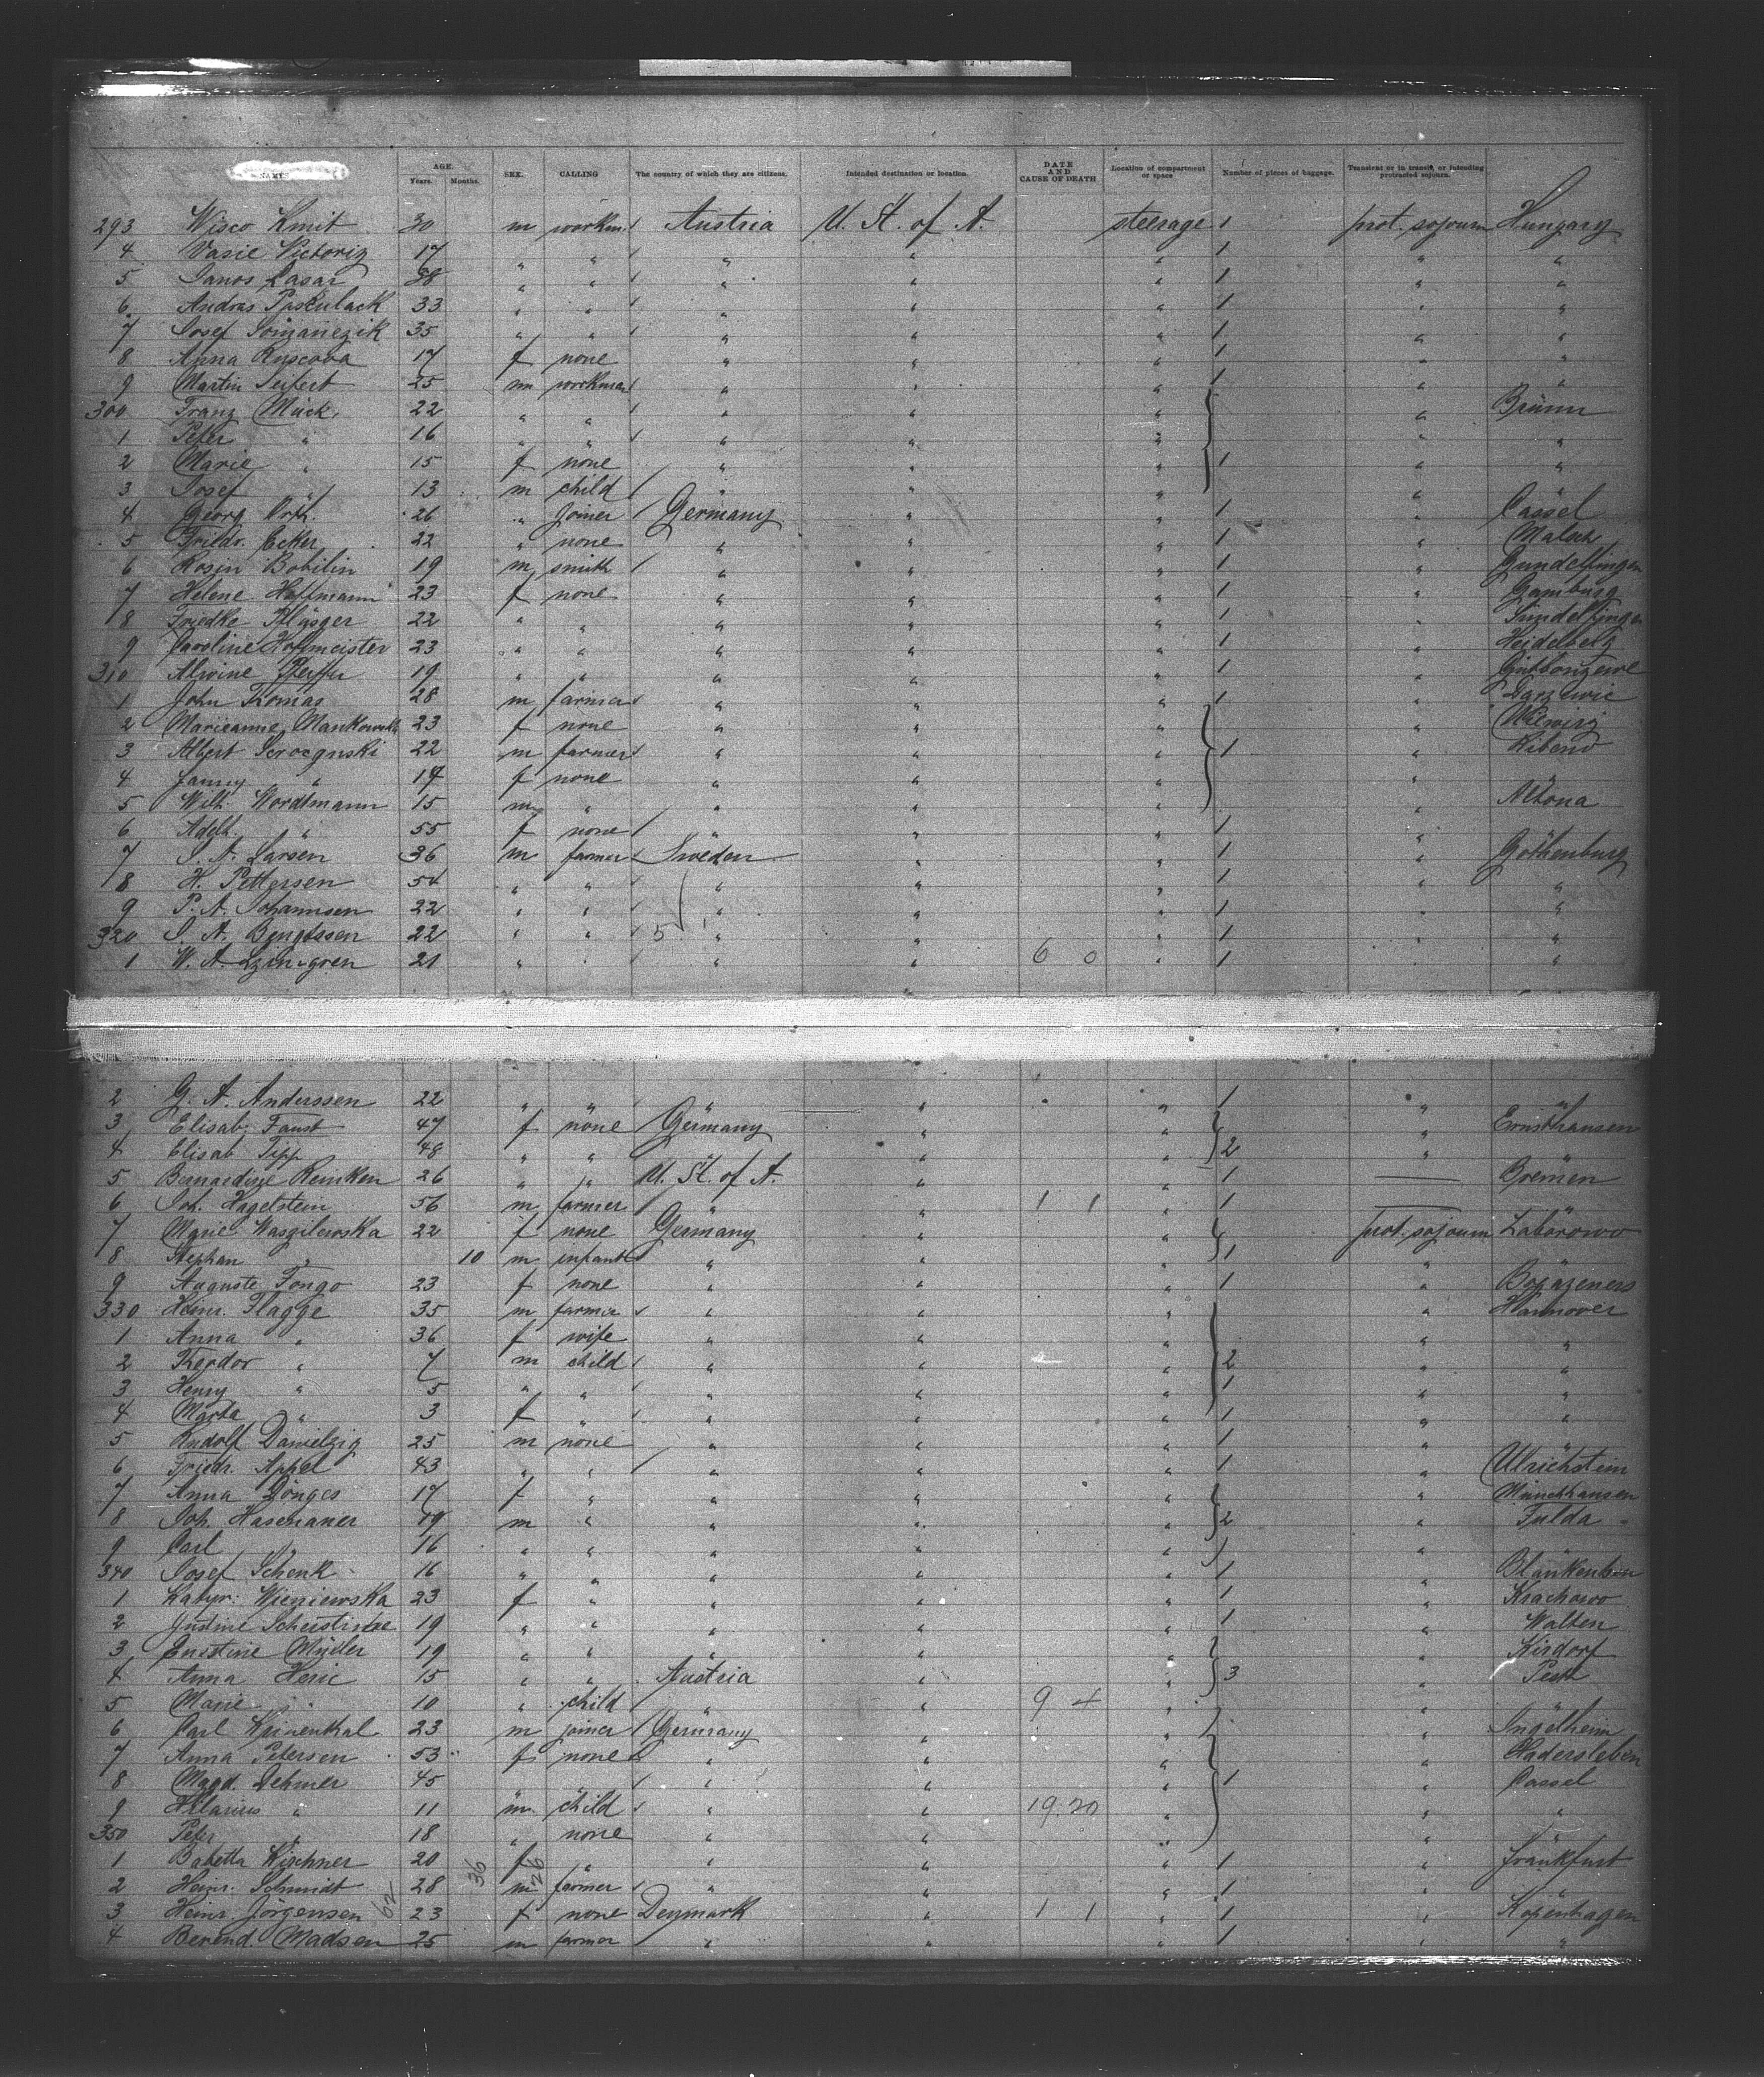 NAMES AGE. Years. Months. SEX. CALLING The country of which they are citizens. Intended destination or location. DATE AND CAUSE OF DEATH Location of compartment or space Number of pieces of baggage. Transient or in transit, or intending protracted sojourn.
293 Wisco Kmit 30 m workm. Austria U. St. of A. steerage 1 prot. sojourn Hungary
4 Vasie 17 " " " " " 1 " "
5 Janos Lasar 38 " " " " " 1 " "
6 Andras 33 " " " " " 1 " "
7 Josef 35 " " " " " 1 " "
8 Anna Ruscova 17 f none " " " 1 " "
9 Martin Seifert 25 m workman " " " 1 " "
300 Franz Mück 22 " " " " " " Brünn
1 Peter " 16 " " " " " " "
2 Marie " 15 f none " " " 1 " "
3 Josef " 13 m child " " " "
4 Georg Orth. 26 " joiner Germany " " 1 " Cassel
5 Friedr. Ecker 22 " none " " " 1 " Malsch
6 Rosin Bobilin 19 m smith " " " 1 " Gundelfingen
7 Helene Hoffmann 23 f none " " " 1 " Gamburg
8 Friedke Pfläsger 22 " " " " " 1 " Sindelfingen
9 Caroline Hoffmeister 23 " " " " " 1 " Heidelberg
310 Alwine Pfeiffer 19 " " " " " 1 "
1 John Thomas 28 m farmer " " " 1 "
2 Marieanne Mankowska 23 f none " " " "
3 Albert 22 m farmer " " " 1 "
4 Fanny " 17 f none " " " "
5 Wilh. Wordtmann 15 m " " " " " Altona
6 Adelh. " 55 f none " " " 1 "
7 J. A. Larsen 36 m farmer Sweden " " 1 " Gothenburg
8 H. Pettersen 54 " " " " " 1 " "
9 P. A. Johannsen 22 " " " " " 1 " "
320 J. A. Bengtssen 22 " " 5 " " " 1 " "
1 W. A. 21 " " " " 6 0 " 1 " "
2 G. A. Anderssen 22 " " " " " 1 " "
3 Elisab. Faust 47 f none Germany " " " Ernsthausen
4 Elisab Tipp 48 " " " " " 2 " "
5 Bernardine Reinken 26 " " U. St. of A. " " 1 — Bremen
6 Joh. Hagelstein 56 m farmer " " 1 1 " 1
7 Marie Wasgilewska 22 f none Germany " " prot. sojourn Labörowo
8 Stephan " 10 m infant " " " 1 "
9 Auguste Fongo 23 f none " " " 1 "
330 Heinr. Flagge 35 m farmer " " " " Hannover
1 Anna " 36 f wife " " " " "
2 Theodor " 7 m child " " " 2 " "
3 Henry " 5 " " " " " 1 " "
4 Marta " 3 f " " " " 1 " "
5 Rudolf Danielzig 25 m none " " " 1 " "
6 Friedr. Appel 43 " " " " " 1 " Ulrichstein
7 Anna Dönges 17 f " " " " " Münchhausen
8 Joh. Hasenauer 19 m " " " " 2 " Fulda
9 Carl " 16 " " " " " "
340 Josef Schenk 16 " " " " " 1 "
1 Katyr. Wieniewska 23 f " " " " 1 " Krachowo
2 Justine 19 " " " " " 1 " Walten
3 Ernstine Müller 19 " " " " " " Kirdorf
4 Anna Heric 15 " " Austria " " 3 " Pest
5 Marie " 10 " child " " 9 4 " "
6 Carl 23 m joiner Germany " " " Ingelheim
7 Anna Petersen 53 f none " " " " Hadersleben
8 Magd. Dehmer 45 " " " " " 1 " Cassel
9 Hilarius " 11 m child " " 19.20 " " "
350 Peter " 18 " none " " " "
1 Babetta Kirchner 20 f " " " " 1 " Frankfurt
2 Heinr. Schmidt 28 m farmer " " " 1 " "
3 Heinr. Jörgensen 23 f none Denmark " 1 1 " 1 " Kopenhagen
4 Berend. Madsen 25 m farmer " " " 1 " "
62 36 26